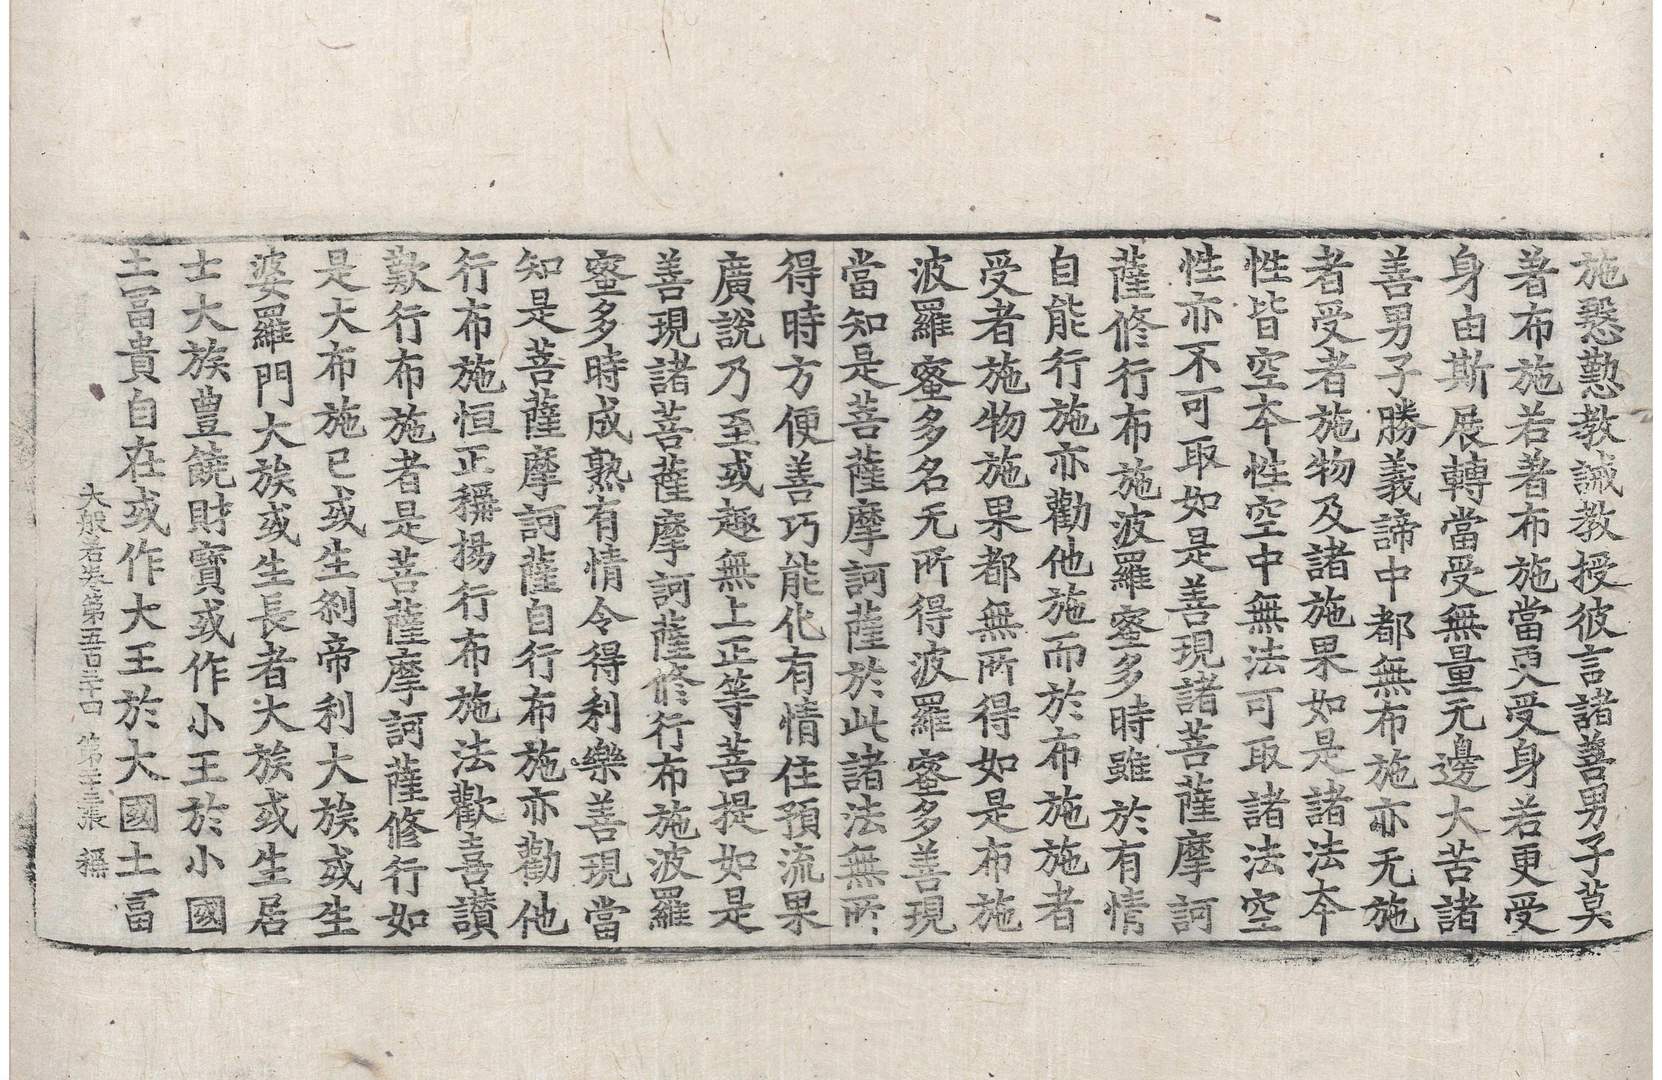 施慇懃教誡教授彼言諸善男子莫
著布施若著布施當更受身若更受
身由斯展轉當受無量无邊大苦諸
善男子勝義諦中都無布施亦无施
者受者施物及諸施果如是諸法本
性皆空本性空中無法可取諸法空
性亦不可取如是善現諸菩薩摩訶
薩修行布施波羅蜜多時雖於有情
自能行施亦勸他施而於布施施者
受者施物施果都無所得如是布施
波羅蜜多名无所得波羅蜜多善現
當知是菩薩摩訶薩於此諸法無所
得時方便善巧能化有情住預流果
廣說乃至或趣無上正等菩提如是
善現諸菩薩摩訶薩修行布施波羅
蜜多時成熟有情令得利樂善現當
知是菩薩摩訶薩自行布施亦勸他
行布施恒正稱揚行布施法歡喜讚
歎行布施者是菩薩摩訶薩修行如
是大布施已或生剎帝利大族或生
婆羅門大族或生長者大族或生居
士大族豊饒財寶或作小王於小國
土冨貴自在或作大王於大國土冨
大般若卷第五百三十四 第 張 稱